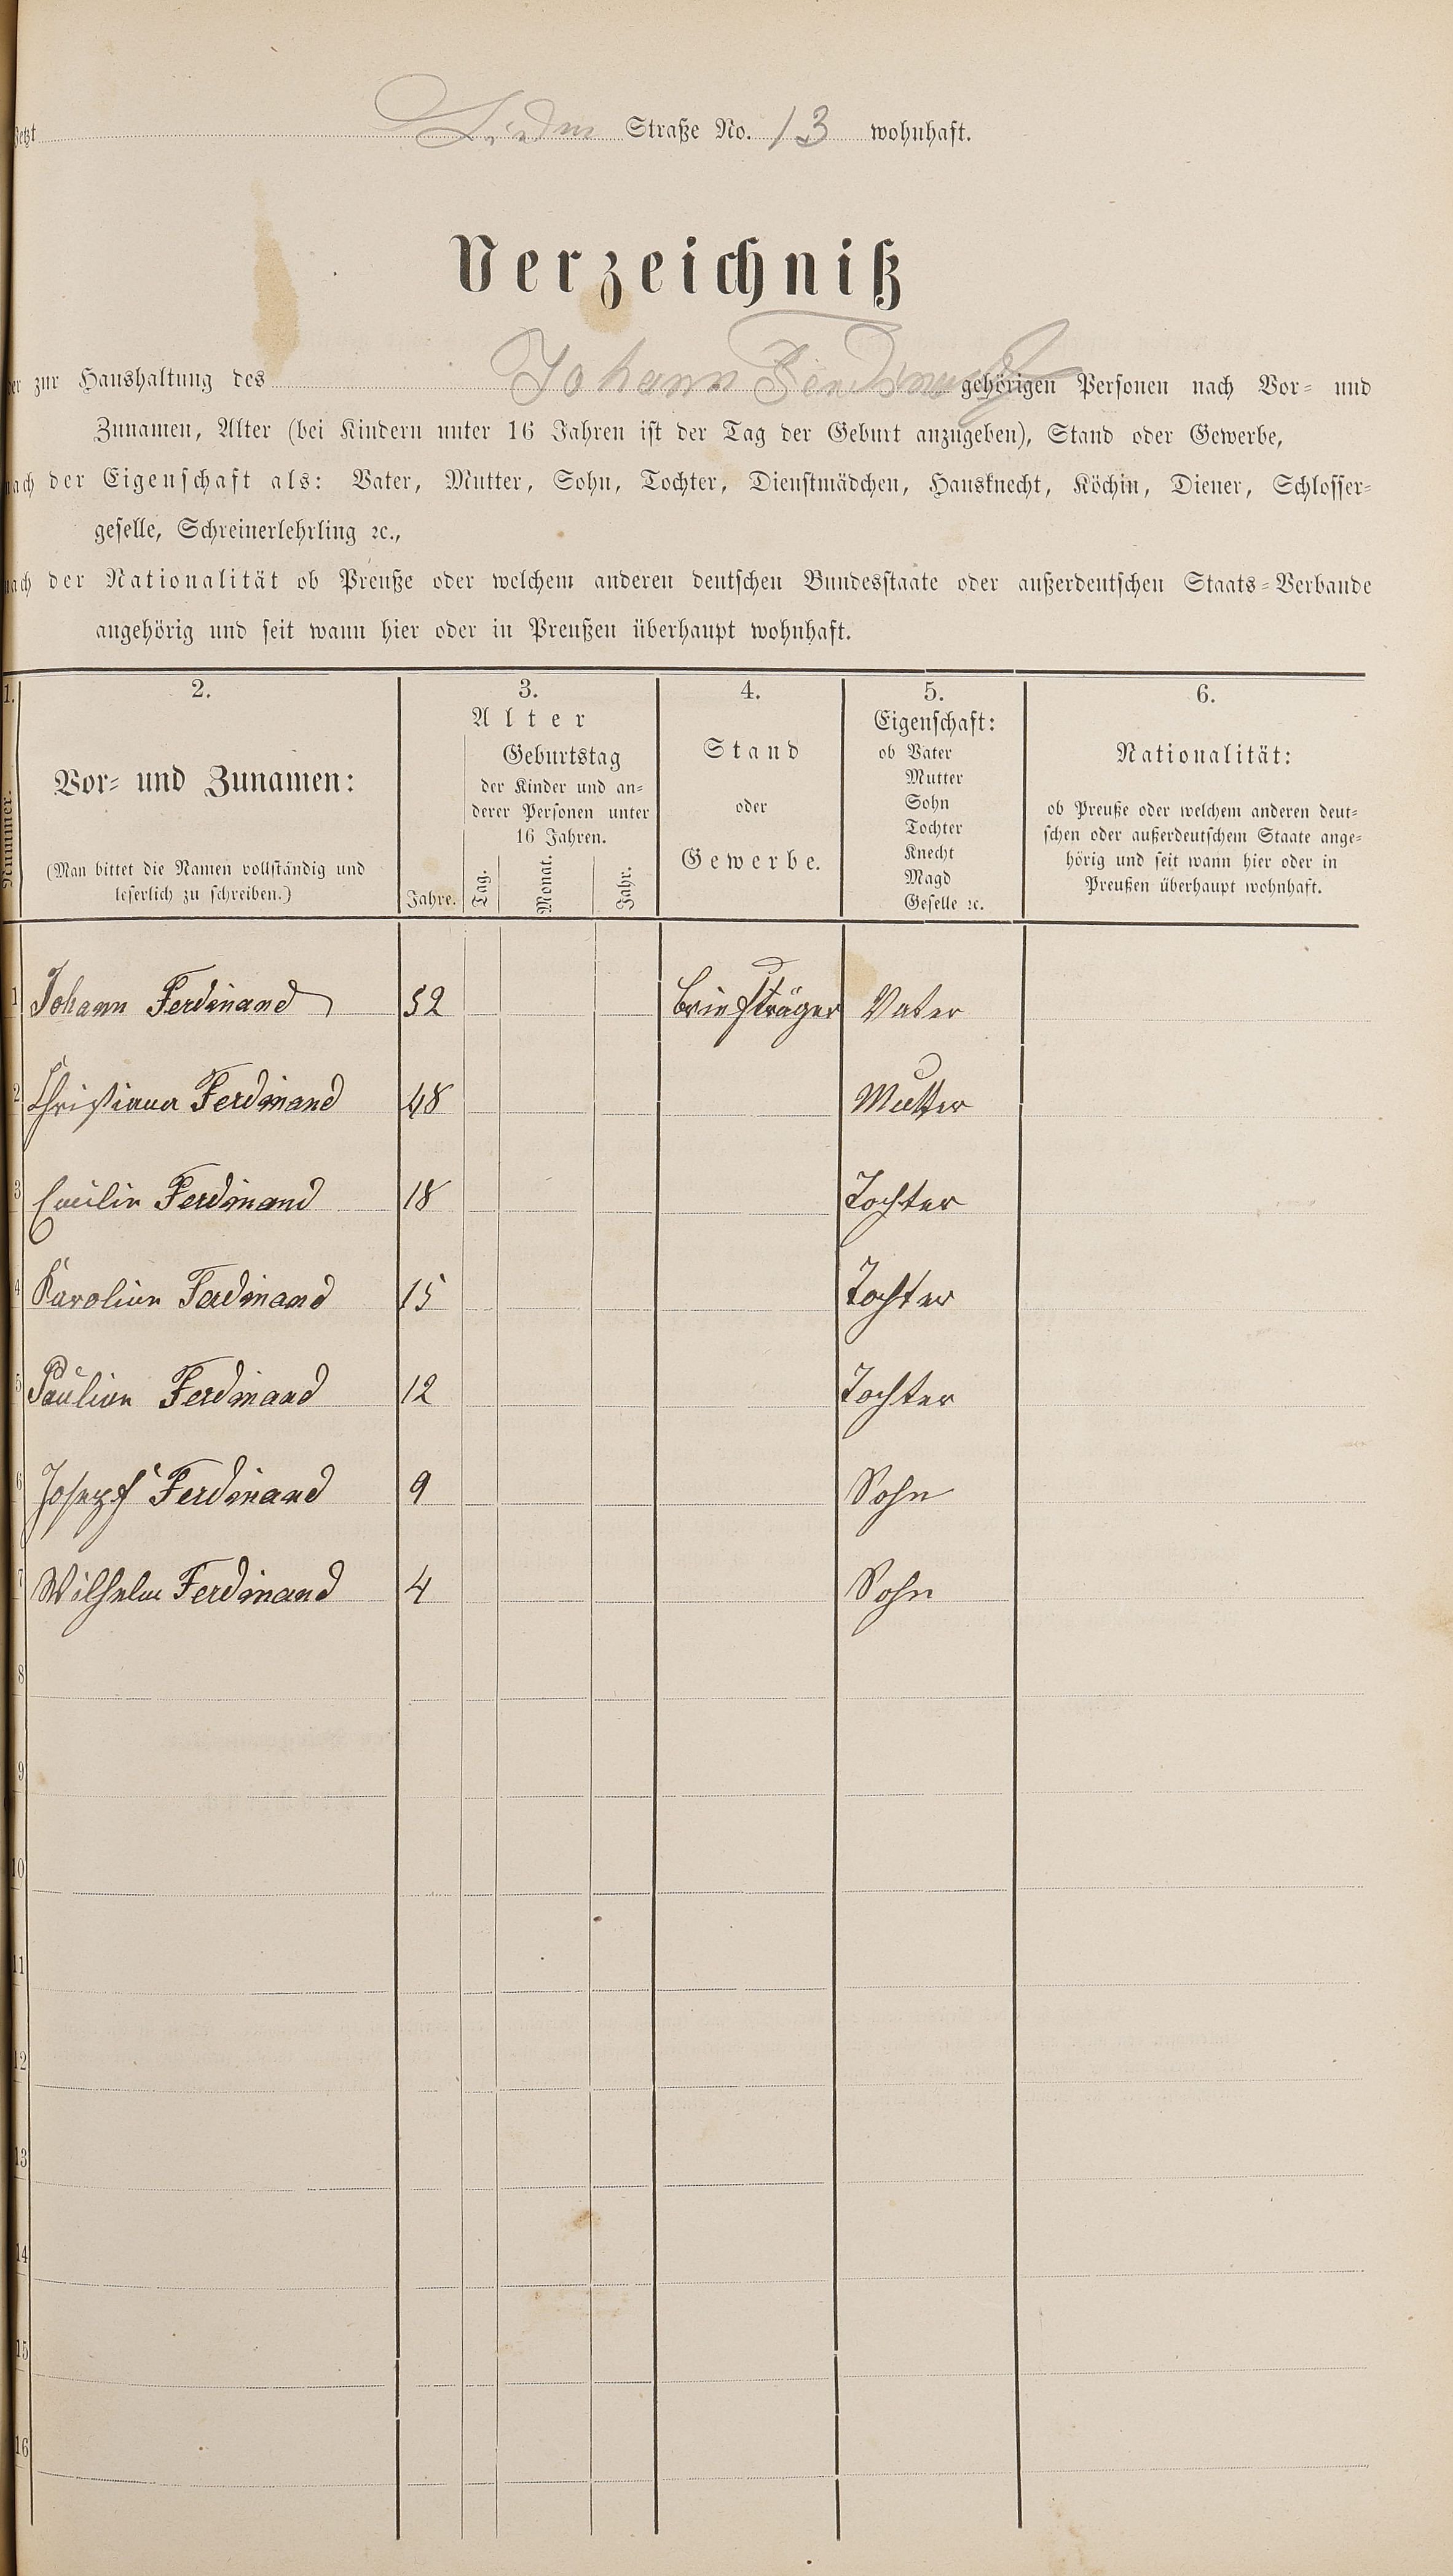 Jetzt Straße No. 13 wohnhaft.
Verzeichniß
der zur Haushaltung des Johann Ferdinand gehörigen Personen nach Vor- und
Zunamen, Alter (bei Kindern unter 16 Jahren ist der Tag der Geburt anzugeben), Stand oder Gewerbe,
nach der Eigenschaft als: Vater, Mutter, Sohn, Tochter, Dienstmädchen, Hausknecht, Köchin, Diener, Schlosser-
geselle, Schreinerlehrling ꝛc.,
nach der Nationalität ob Preuße oder welchem anderen deutschen Bundesstaate oder außerdeutschen Staats-Verbande
angehörig und seit wann hier oder in Preußen überhaupt wohnhaft.
1.
Nummer.
2.
Vor- und Zunamen:
(Man bittet die Namen vollständig und
leserlich zu schreiben.)
3.
Alter
Jahre.
Geburtstag
der Kinder und an-
derer Personen unter
16 Jahren.
Tag. Monat. Jahr.
4.
Stand
oder
Gewerbe.
5.
Eigenschaft:
ob Vater
Mutter
Sohn
Tochter
Knecht
Magd
Geselle ꝛc.
6.
Nationalität:
ob Preuße oder welchem anderen deut-
schen oder außerdeutschem Staate ange-
hörig und seit wann hier oder in
Preußen überhaupt wohnhaft.
1 Johann Ferdinand 52 Briefträger Vater
2 Christiana Ferdinand 48 Mutter
3 Emilie Ferdinand 18 Tochter
4 Karoline Ferdinand 15 Tochter
5 Pauline Ferdinand 12 Tochter
6 Joseph Ferdinand 9 Sohn
7 Wilhelm Ferdinand 4 Sohn
8
9
10
11
12
13
14
15
16